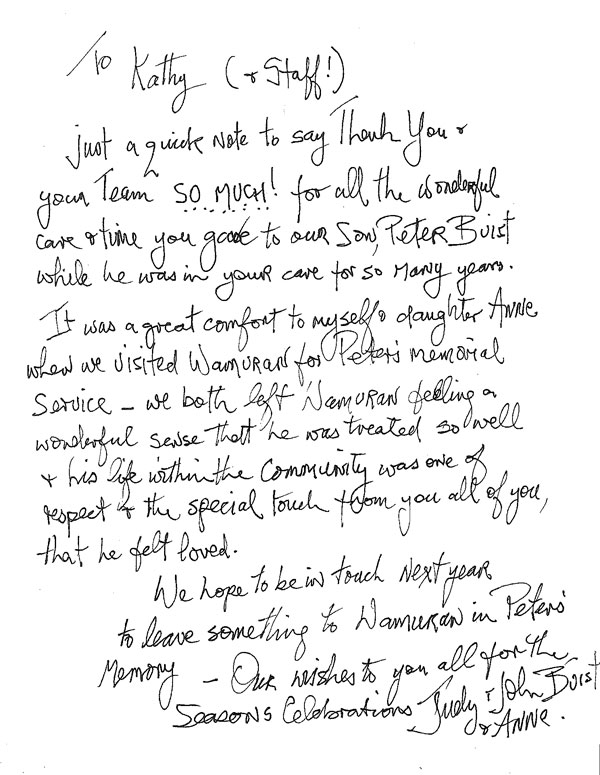 To Kathy (& Staff!)
Just a quick note to say Thank You &
your Team SO MUCH! for all the wonderful
care & time you gave to our Son, Peter Buist
while he was in your care for so many years.
It was a great comfort to myself & daughter Anne
when we visited Wamuran for Peter's memorial
Service – we both left Wamuran feeling a
wonderful sense that he was treated so well
& his life within the Community was one of
respect & the special touch from you all of you,
that he felt loved.
We hope to be in touch next year
to leave something to Wamuran in Peter's
Memory – Our wishes to you all for the
Seasons Celebrations Judy & John Buist
& Anne.